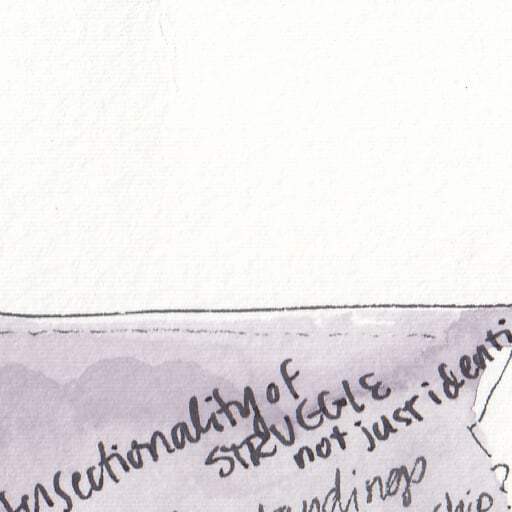 intersectionality of
STRUGGLE
not just identi
ndings
ship?